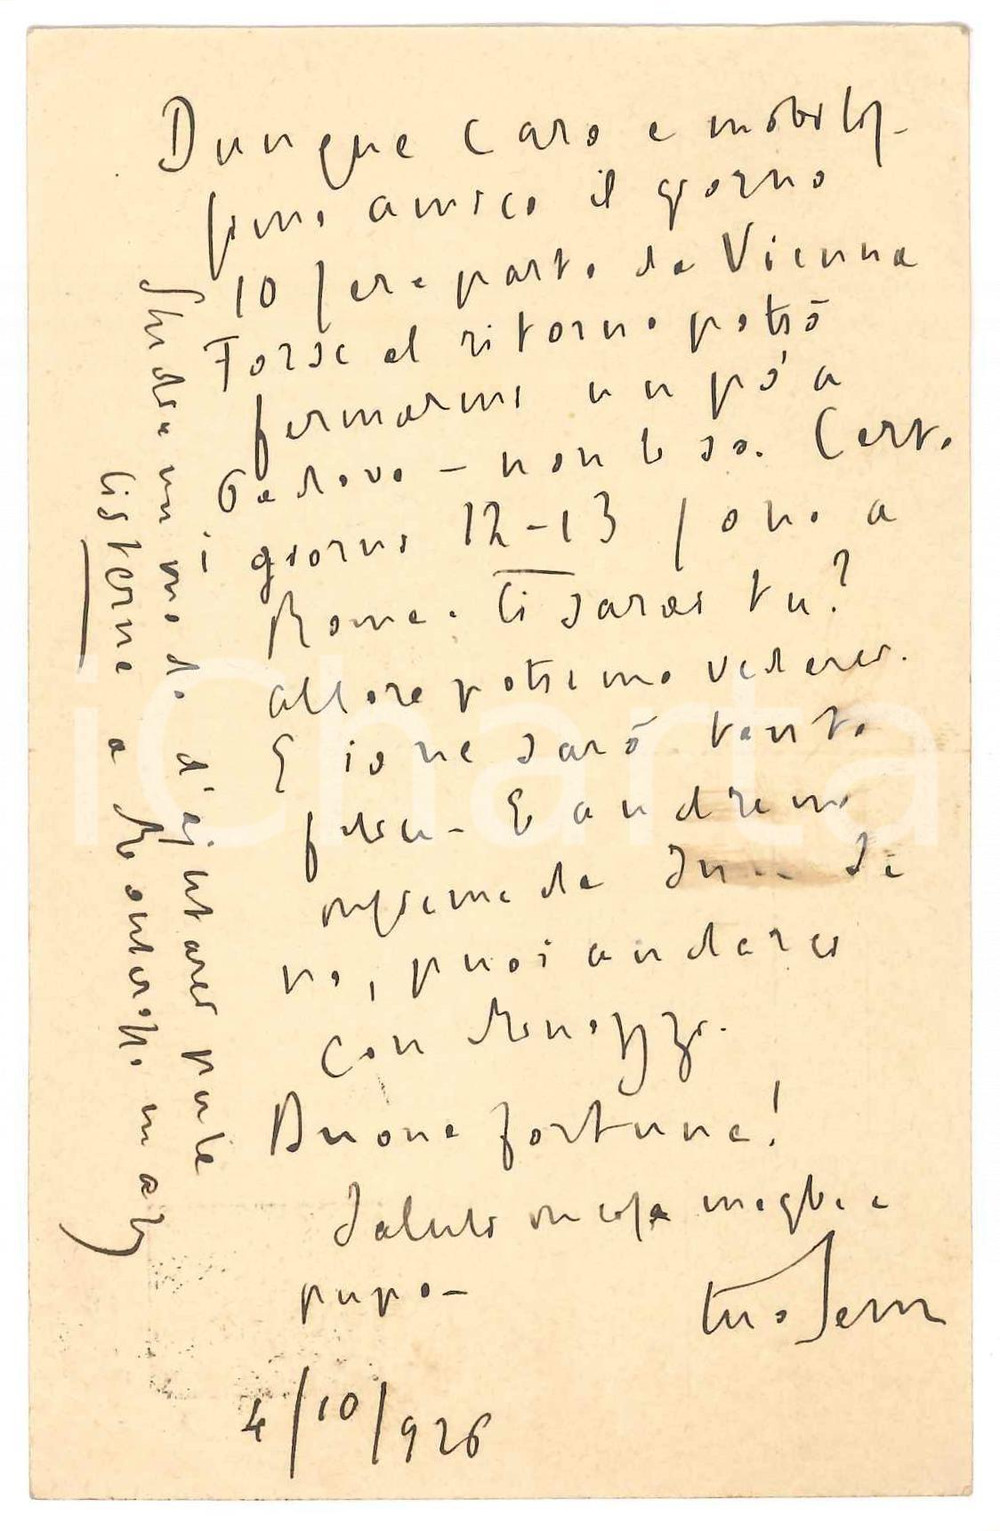 Dunque caro e nobilis-
simo amico il giorno
10 sera parto da Vienna
Forse al ritorno potrò
fermarmi un pò a
Padova - non lo so. Certo
i giorni 12-13 sono a
Roma. Ci sarai tu?
allora potremo vederci.
E io ne sarò tanto
felice - E andremo
insieme da
no, puoi andarci
con
Buona fortuna!
Saluti in casa moglie e
pupo -
tuo
4/10/926
Studia un modo d'ajutarci per le
cisterne a
iCharta